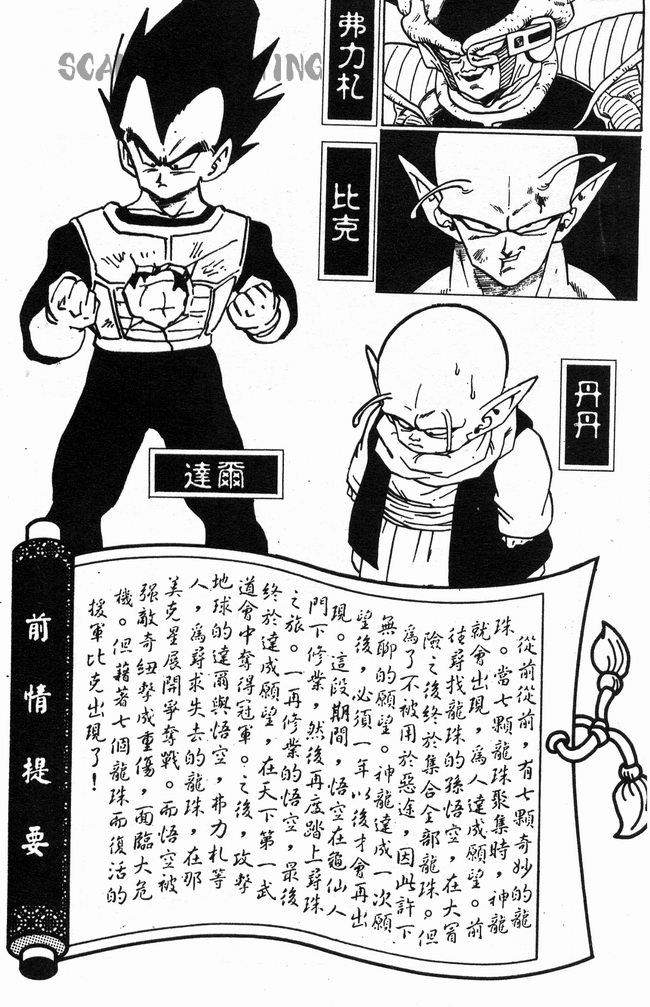 弗力札
比克
丹丹
達爾
前情提要
從前從前，有七顆奇妙的龍
珠。當七顆龍珠聚集時，神龍
就會出現，爲人達成願望。前
往尋找龍珠的孫悟空，在大冒
險之後終於集合全部龍珠。但
爲了不被用於惡途，因此許下
無聊的願望。神龍達成一次願
望後，必須一年以後才會再出
現。這段期間，悟空在龜仙人
門下修業，然後再度踏上尋珠
之旅。一再修業的悟空，最後
終於達成願望，在天下第一武
道會中奪得冠軍。之後，攻擊
地球的達爾與悟空，弗力札等
人，爲尋求失去的龍珠，在那
美克星展開爭奪戰。而悟空被
強敵奇紐擊成重傷，面臨大危
機。但藉著七個龍珠而復活的
援軍比克出現了！